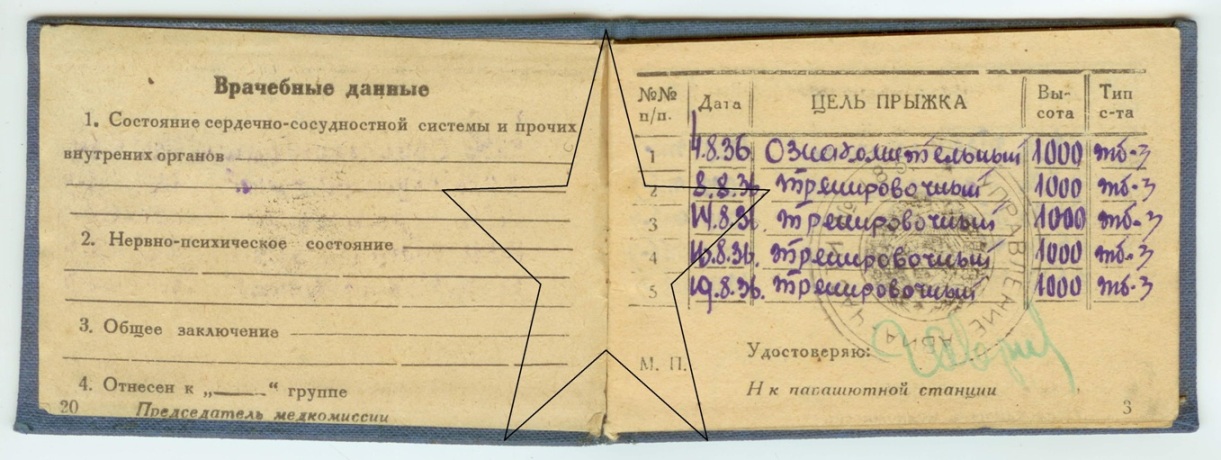 Врачебные данные
1. Состояние сердечно-сосудностной системы и прочих
внутрених органов
2. Нервно-психическое состояние
3. Общее заключение
4. Отнесен к „ “ группе
20
Председатель медкомиссии
№№ п/п. Дата ЦЕЛЬ ПРЫЖКА Вы-сота Тип с-та
1 4.8.36 Ознакомительный 1000 тб-3
2 8.8.36 тренировочный 1000 тб-3
3 14.8.36. тренировочный 1000 тб-3
4 16.8.36. тренировочный 1000 тб-3
5 19.8.36. тренировочный 1000 тб-3
УПРАВЛЕНИЕ
М. П.
Удостоверяю:
Н к парашютной станции
3